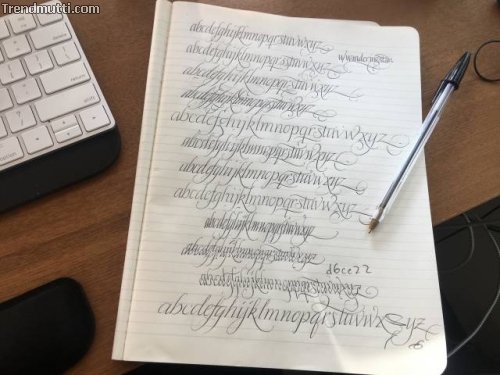 Trendmutti.com
abcdefghijklmnopqrstuvwxyz
abcdefghijklmnopqrstuvwxyz
abcdefghijklmnopqrstuvwxyz
abcdefghijklmnopqrstuvwxyz
abcdefghijklmnopqrstuvwxyz
abcdefghijklmnopqrstuvwxyz
abcdefghijklmnopqrstuvwxyz
abcdefghijklmnopqrstuvwxyz
abcdefghijklmnopqrstuvwxyz
abcdefghijklmnopqrstuvwxyz
d6ce22
abcdefghijklmnopqrstuvwxyz
abcdefghijklmnopqrstuvwxyz